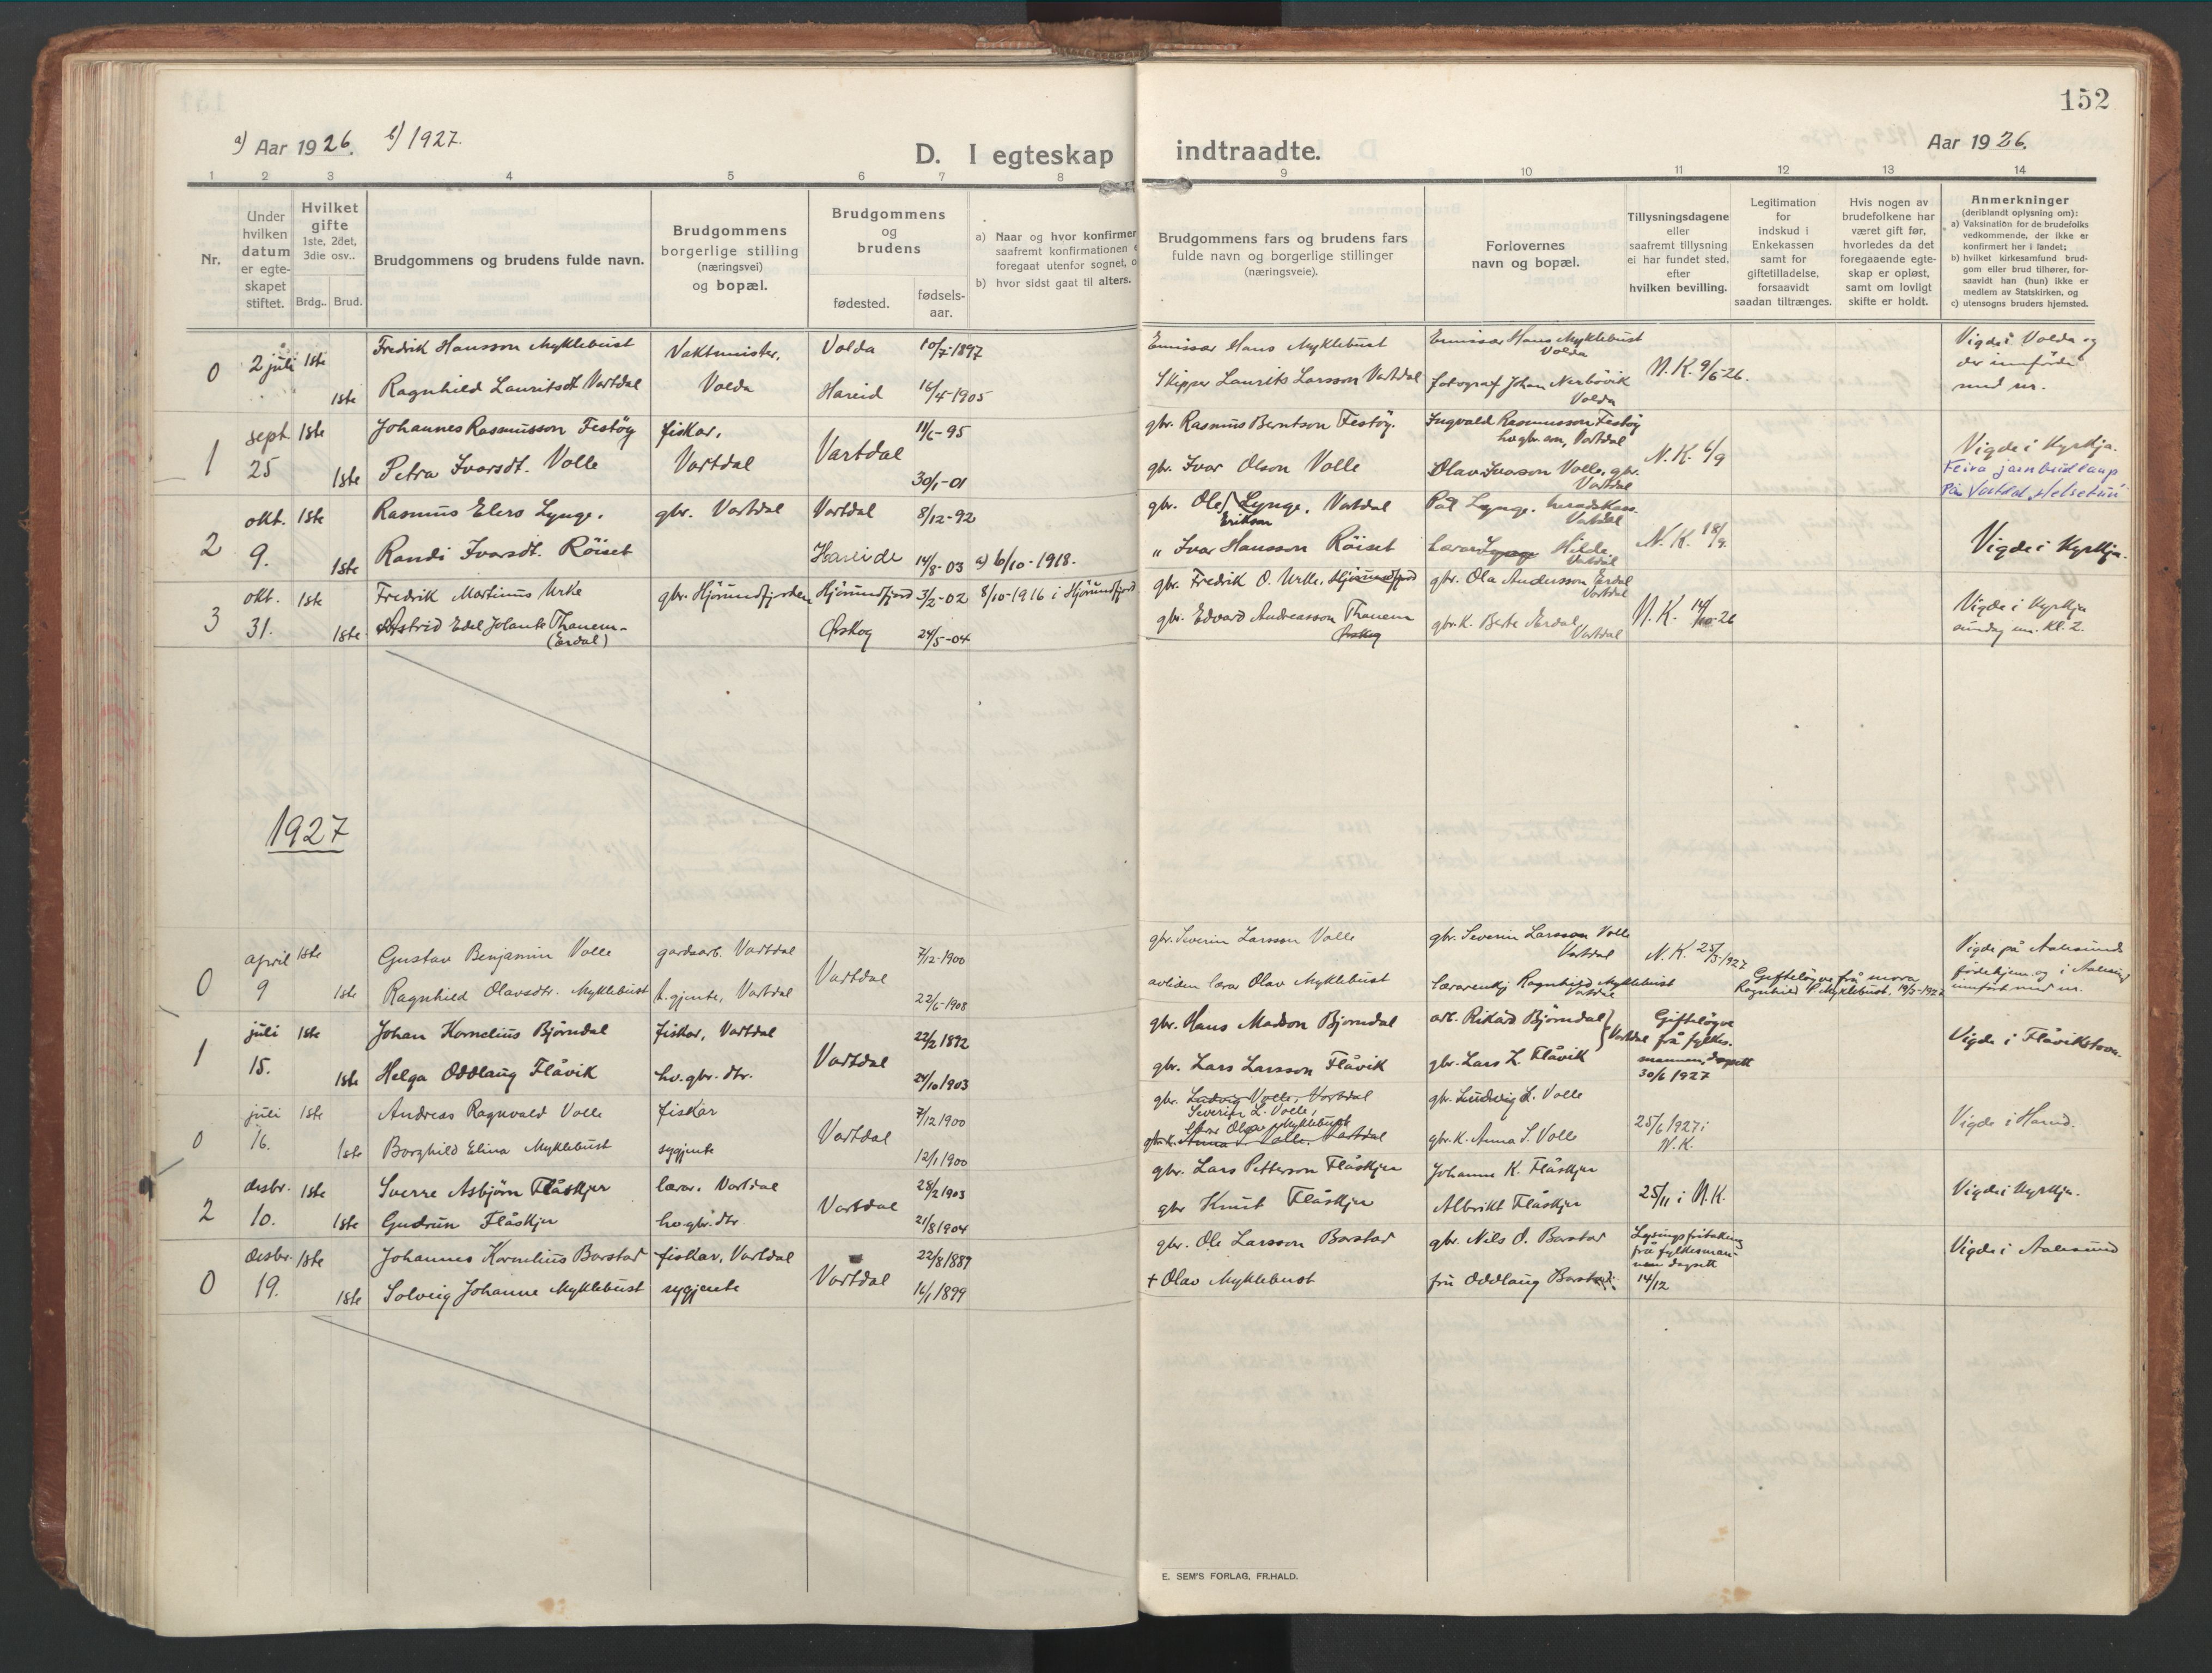 152
a) Aar 1926. b) 1927.
D. I egteskap indtraadte.
Aar 1926.
1 2 3 4 5 6 7 8 9 10 11 12 13 14
Nr.
Under hvilken datum er egte-skapet stiftet.
Hvilket gifte 1ste, 2det, 3die osv..
Brdg.. Brud.
Brudgommens og brudens fulde navn.
Brudgommens borgerlige stilling (næringsvei) og bopæl.
Brudgommens og brudens
fødested.
fødsels-aar.
a) Naar og hvor konfirmer
saafremt konfirmationen e
foregaat utenfor sognet, o
b) hvor sidst gaat til alters.
Brudgommens fars og brudens fars
fulde navn og borgerlige stillinger
(næringsveie).
Forlovernes
navn og bopæl.
Tillysningsdagene
eller
saafremt tillysning
ei har fundet sted,
efter
hvilken bevilling.
Legitimation
for
indskud i
Enkekassen
samt for
giftetilladelse,
forsaavidt
saadan tiltrænges.
Hvis nogen av
brudefolkene har
været gift før,
hvorledes da det
foregaaende egte-
skap er opløst,
samt om lovligt
skifte er holdt.
Anmerkninger
(deriblandt oplysning om):
a) Vaksination for de brudefolks
vedkommende, der ikke er
konfirmert her i landet;
b) hvilket kirkesamfund brud-
gom eller brud tilhører, for-
saavidt han (hun) ikke er
medlem av Statskirken, og
c) utensogns bruders hjemsted.
0 2 juli 1ste Fredrik Hansson Myklebust Vaktmister, Volda 10/7-1897 Emissær Hans Myklebust Emissær Hans Myklebust Volda N.K. 9/6-26. Vigde i Volda og
1ste Ragnhild Lauritsdt. Vartdal Volda Hareid 16/4-1905 Skipper Laurits Larsson Vartdal fotograf Johan Nerbövik Volda der innförde med nr.
1 sept. 1ste Johannes Rasmusson Festöy fiskar, Vartdal 11/6-95 gbr. Rasmus Berntson Festöy. Ingvald Rasmusson Festöy Vartdal N.K. 6/9 Vigde i Kyrkja.
25 1ste Petra Ivarsdt. Volle Vartdal 30/1-01 gbr. Ivar Olson Volle Olav Ivarson Volle, gbr. Vartdal Feira jarnbrudlaup
På Vartdal Helsetun
2 okt. 1ste Rasmus Elers Lynge, gbr. Vartdal Vartdal 8/12-92 gbr. Ole Erikson Lynge, Vartdal Pål Lynge, Vartdal N.K. 18/9.
9. 1ste Randi Ivarsdt. Röiset Hareide 14/8-03 a) 6/10-1918. " Ivar Hansson Röiset Lærar Lynge Hilde Vartdal Vigde i Kyrkja.
3 okt. 1ste Fredrik Martinus Urke gbr. Hjörundfjorden Hjörundfjord 3/2-02 8/10-1916 i Hjörundfjord gbr. Fredrik O. Urke, Hjörundfjord gbr. Ola Andersson Erdal Vartdal Vigde i Kyrkja
31. 1ste Astrid Edel Jolante Thanem- (Erdal) Ørskog 24/5-04 gbr. Edvard Andreasson Thanem Ørskog gbr.k. Berte Erdal Vartdal N.K. 14/10-26 sundag em. Kl. 2.
1927
0 april 1ste Gustav Benjamin Volle gardsarb. Vartdal Vartdal 7/12-1900 gbr. Severin Larsson Volle gbr. Severin Larsson Volle Vartdal N.K. 25/3-1927 Vigde på Aalesunds
9 1ste Ragnhild Olavsdtr. Myklebust t. gjente, Vartdal 22/6-1908 avliden lærar Olav Myklebust lærarenkj Ragnhild Myklebust Vartdal Gifteløyve frå mora Ragnhild P. Myklebust. 19/3-1927 födehjem og i Aalesund innfört med nr.
1 juli 1ste Johan Kornelius Björndal fiskar, Vartdal Vartdal 22/2 1892 gbr. Hans Madson Björndal arb. Rikard Björndal Vartdal Gifteløyve frå fylkes-
15. 1ste Helga Oddlaug Flåvik hv. gbr. dtr. 24/10 1903 gbr. Lars Larsson Flåvik gbr. Lars L. Flåvik mannen, dagsett 30/6 1927 Vigde i Flåvikstova.
0 juli 1ste Andreas Ragnvald Volle fiskar Vartdal 7/12 1900 gbr. Ludvig Volle, Vartdal Severin L. Volle, gbr. Ludvig L. Volle 25/6 1927 i N.K. Vigde i Hareid.
16. 1ste Borghild Elina Myklebust sygjente 12/1 1900 Olav Myklebust gbr.k. Anna S. Volle, Vartdal gbr.k. Anna S. Volle
2 desbr. 1ste Sverre Asbjörn Flåskjer lærar, Vartdal Vartdal 28/2 1903 gbr. Lars Petterson Flåskjer Johanne K. Flåskjer 25/11 i N.K. Vigde i Kyrkja.
10. 1ste Gudrun Flåskjer hv gbr. dtr. 21/8 1904 gbr Knut Flåskjer Albrikt Flåskjer
0 desbr. 1ste Johannes Kornelius Barstad fiskar, Vartdal Vartdal 22/8 1889 gbr. Ole Larsson Barstad gbr. Nils O. Barstad Lysingsfritaking frå fylkesman-nen dagsett Vigde i Aalesund
19. 1ste Solveig Johanne Myklebust sygjente 16/1 1899 + Olav Myklebust fru Oddlaug Barstad. 14/12
E. SEM'S FORLAG, FR.HALD.